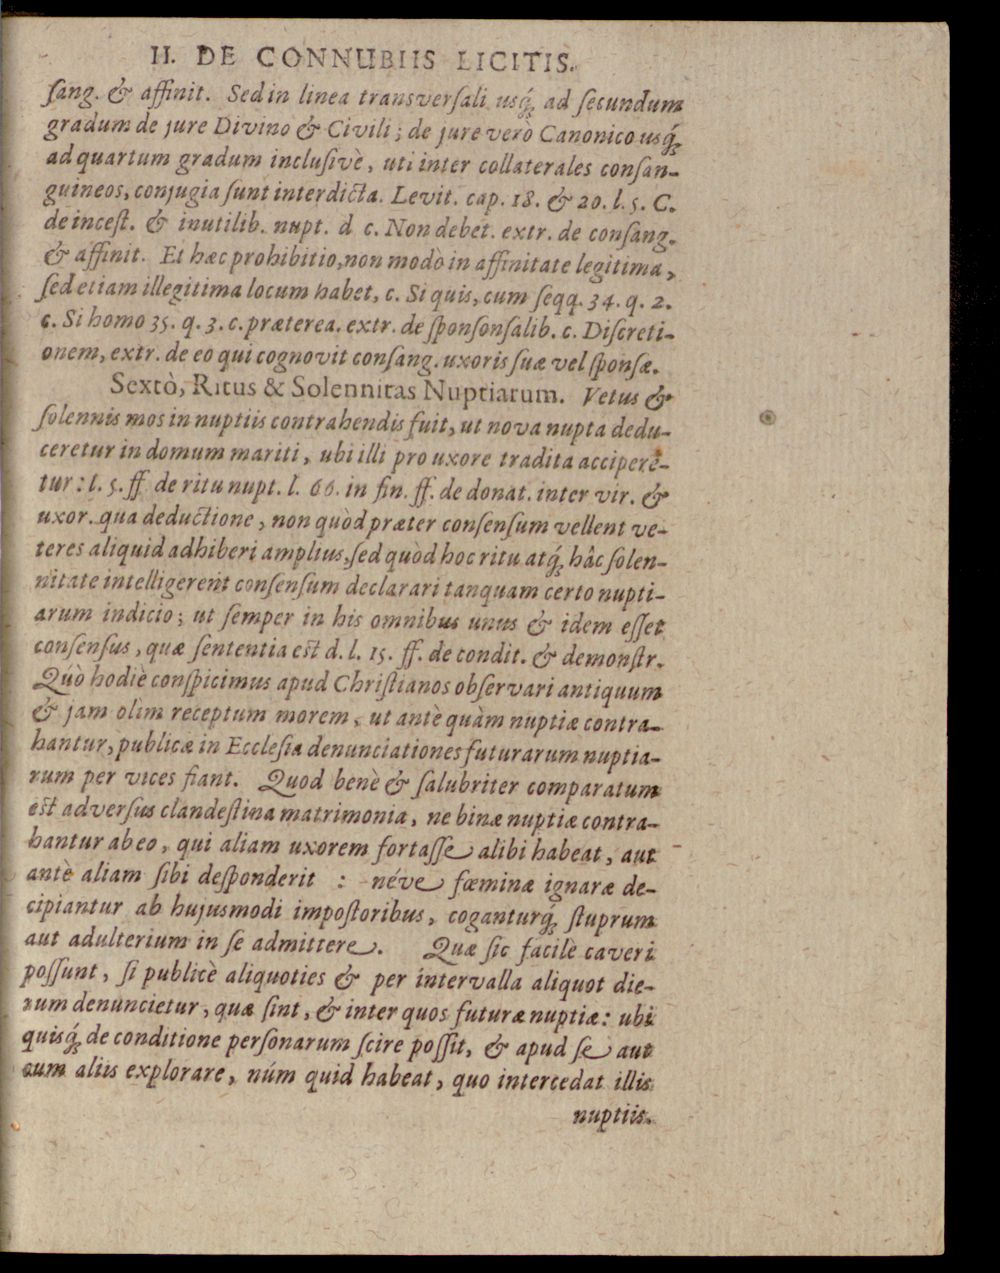 II. DE CONNUBIIS LICITIS.
ſang. & affinit. Sed in linea transverſali usq́ꝫ ad ſecundum
gradum de jure Divino & Civili; de jure verò Canonico usq́ꝫ
ad quartum gradum incluſivè, uti inter collaterales conſan-
guineos, conjugia ſunt interdicta. Levit. cap. 18. & 20. l. 5. C.
de inceſt. & inutilib. nupt. d c. Non debet. extr. de conſang.
& affinit. Et hæc prohibitio, non modò in affinitate legitima,
ſed etiam illegitima locum habet, c. Si quis, cum ſeqq. 34. q. 2.
c. Si homo 35. q. 3. c. præterea. extr. de ſponſonſalib. c. Diſcreti-
onem, extr. de eo qui cognovit conſang. uxoris ſuæ vel ſponſæ.
Sextò, Ritus & Solennitas Nuptiarum. Vetus &
ſolennis mos in nuptiis contrahendis fuit, ut nova nupta dedu-
ceretur in domum mariti, ubi illi pro uxore tradita accipere-
tur: l. 5. ff de ritu nupt. l. 66. in fin. ff. de donat. inter vir. &
uxor. qua deductione, non quòd præter conſenſum vellent ve-
teres aliquid adhiberi amplius, ſed quòd hoc ritu atq́ꝫ hâc ſolen-
nitate intelligerent conſenſum declarari tanquam certo nupti-
arum indicio; ut ſemper in his omnibus unus & idem eſſet
conſenſus, quæ ſententia est d. l. 15. ff. de condit. & demonſtr.
Quò hodiè conſpicimus apud Chriſtianos obſervari antiquum
& jam olim receptum morem, ut antè quàm nuptiæ contra-
hantur, publicæ in Eccleſia denunciationes futurarum nuptia-
rum per vices fiant. Quod benè & ſalubriter comparatum
est adverſus clandeſtina matrimonia, ne binæ nuptiæ contra-
hantur ab eo, qui aliam uxorem fortaſſe alibi habeat, aut
antè aliam ſibi deſponderit : néve fœminæ ignaræ de-
cipiantur ab hujusmodi impoſtoribus, coganturq́ꝫ ſtuprum
aut adulterium in ſe admittere. Quæ ſic facilè caveri
poſſunt, ſi publicè aliquoties & per intervalla aliquot die-
rum denuncietur, quæ ſint, & inter quos futuræ nuptiæ: ubi
quisq́ꝫ de conditione perſonarum ſcire poſſit, & apud ſe aut
cum aliis explorare, núm quid habeat, quo intercedat illis
nuptiis.